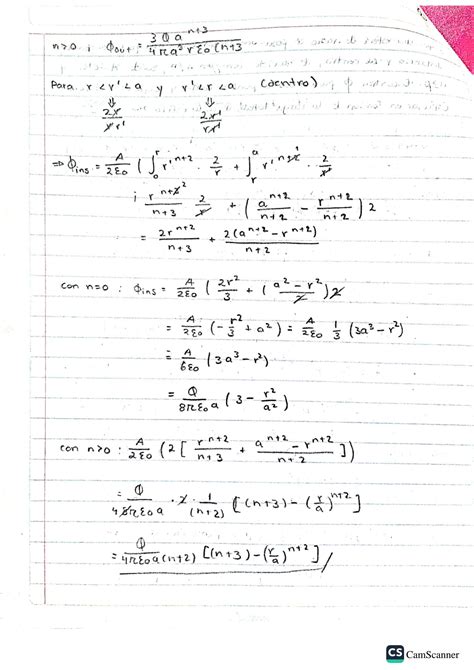 n>0 ; ϕout = 3Qa^(n+3) / 4πa³rε₀(n+3
Para r < r' < a y r' < r < a (dentro)
⇓ ⇓
2r/rr' 2r'/rr'
⇒ ϕins = A/2ε₀ ( ∫₀^r r'^(n+2) · 2/r + ∫_r^a r'^(n+2) · 2/r'
¡ r^(n+2)/n+3 2/r + ( a^(n+2)/n+2 − r^(n+2)/n+2 ) 2
= 2r^(n+2)/n+3 + 2(a^(n+2) − r^(n+2))/n+2
con n=0 : ϕins = A/2ε₀ ( 2r²/3 + ( a² − r²/2 ) 2
= A/2ε₀ (− r²/3 + a²) = A/2ε₀ 1/3 (3a² − r²)
= A/6ε₀ (3a³ − r²)
= Q/8πε₀a ( 3 − r²/a² )
con n>0 : A/2ε₀ ( 2 [ r^(n+2)/n+3 + a^(n+2) − r^(n+2)/n+2 ])
= Q/4πε₀a · 2 · 1/(n+2) [(n+3) − (r/a)^(n+2)]
= Q/4πε₀a(n+2) [(n+3) − (r/a)^(n+2)] /
CS CamScanner